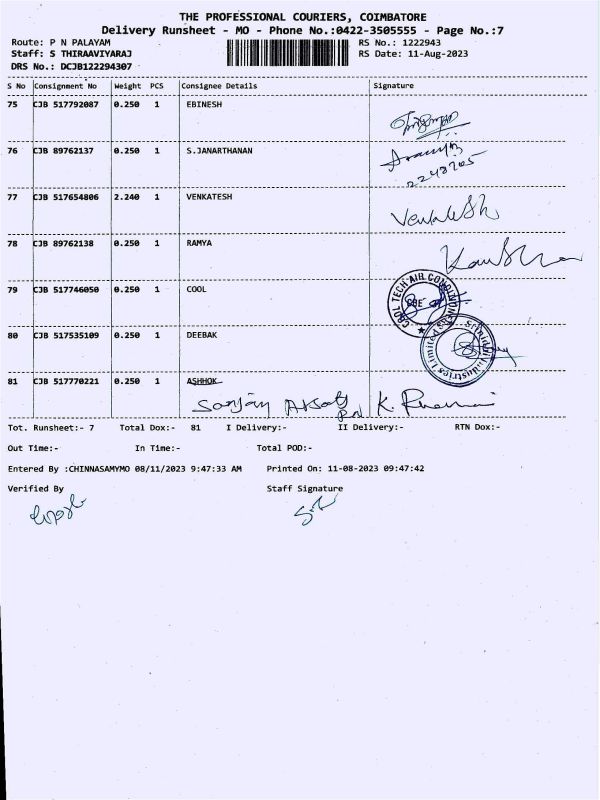 THE PROFESSIONAL COURIERS, COIMBATORE
Delivery Runsheet - MO - Phone No.:0422-3505555 - Page No.:7
Route: P N PALAYAM RS No.: 1222943
Staff: S THIRAAVIYARAJ RS Date: 11-Aug-2023
DRS No.: DCJB122294307
S No Consignment No Weight PCS Consignee Details Signature
75 CJB 517792087 0.250 1 EBINESH
76 CJB 89762137 0.250 1 S.JANARTHANAN
77 CJB 517654806 2.240 1 VENKATESH
Venkatesh
78 CJB 89762138 0.250 1 RAMYA
79 CJB 517746050 0.250 1 COOL
COOL TECH AIR CONDITIONERS
80 CJB 517535109 0.250 1 DEEBAK
Srinidhi Industries Limited
81 CJB 517770221 0.250 1 ASHHOK
Sanjay
Tot. Runsheet:- 7 Total Dox:- 81 I Delivery:- II Delivery:- RTN Dox:-
Out Time:- In Time:- Total POD:-
Entered By :CHINNASAMYMO 08/11/2023 9:47:33 AM Printed On: 11-08-2023 09:47:42
Verified By Staff Signature